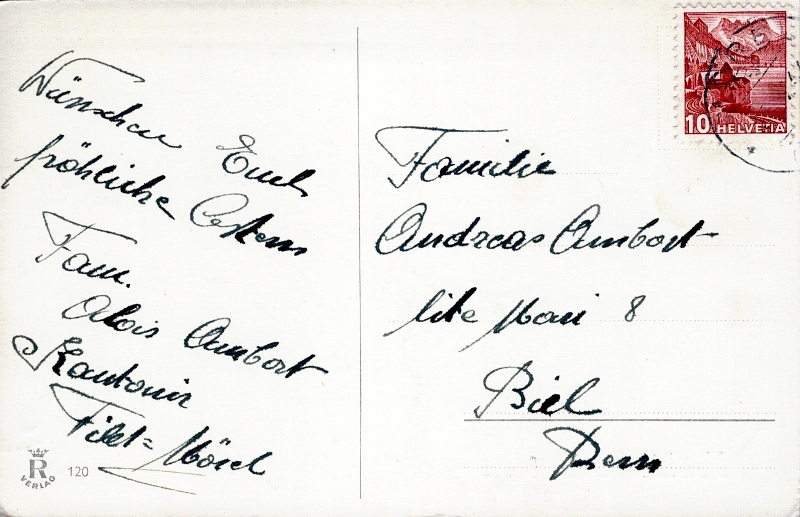 Wünschen Euch
fröhliche Ostern
Fam.
Alois Ambort
Kantonir
Filet=Mörel
R
VERLAG
120
10 HELVETIA
Familie
Andreas Ambort
Biel
Bern